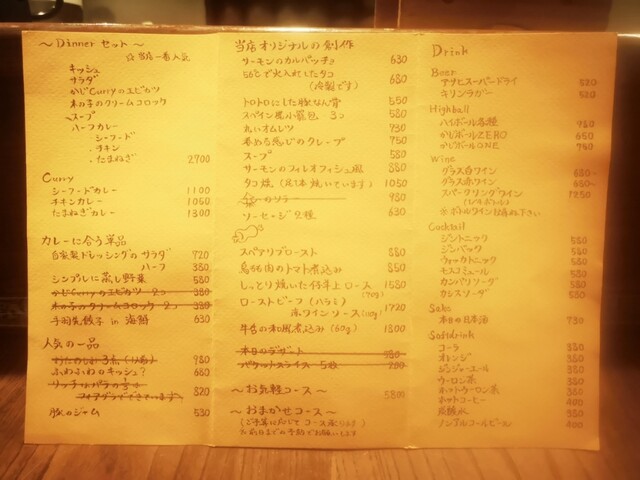 ～Dinner セット～
☆当店一番人気
キッシュ
サラダ
かじCurryのエビカツ
木の子のクリームコロッケ
スープ
ハーフカレー
・シーフード
・チキン
・たまねぎ 2700
Curry
シーフードカレー 1100
チキンカレー 1050
たまねぎカレー 1300
カレーに合う単品
自家製ドレッシングのサラダ 720
ハーフ 380
シンプルに蒸し野菜 580
かじCurryのエビカツ 2つ 380
木の子のクリームコロッケ 2つ 380
手羽先餃子 in 海鮮 630
人気の一品
980
ふわふわ キッシュ? 660
820
豚のジャム 530
当店オリジナルの創作
サーモンのカルパッチョ 630
56°Cで火入れしたタコ 680
(冷製です)
トロトロにした豚なん骨 550
スペイン風小籠包 3つ 580
丸いオムレツ 730
のクレープ 750
スープ 580
サーモンのフィレオフィッシュ風 880
タコ焼 (足1本焼いています) 1050
980
ソーセージ2種 630
スペアリブロースト 880
烏賊肉のトマト煮込み 850
しっとり焼いた 上ロース 1580
ローストビーフ (ハラミ) 1720
赤ワインソース (110g)
牛舌の和風煮込み (60g) 1800
本日のデザート 580
バケットスライス 5枚 200
～お気軽コース～ 5800
～おまかせコース～
(ご予算に応じてコース承ります)
※前日までの予約でお願いします
Drink
Beer
アサヒスーパードライ 580
キリンラガー 580
Highball
ハイボール各種
かじボールZERO 650
かじボールONE 780
Wine
グラス白ワイン 680～
グラス赤ワイン 680～
スパークリングワイン 1250
※ボトルワインお尋ね下さい
Cocktail
ジントニック 580
ジンバック 580
ウォッカトニック 580
モスコミュール 580
カンパリソーダ 580
カシスソーダ 580
Sake
本日の日本酒 730
Softdrink
コーラ 380
オレンジ 380
ジンジャーエール 380
ウーロン茶 380
ホットウーロン茶 380
ホットコーヒー 400
炭酸水 380
ノンアルコールビール 400